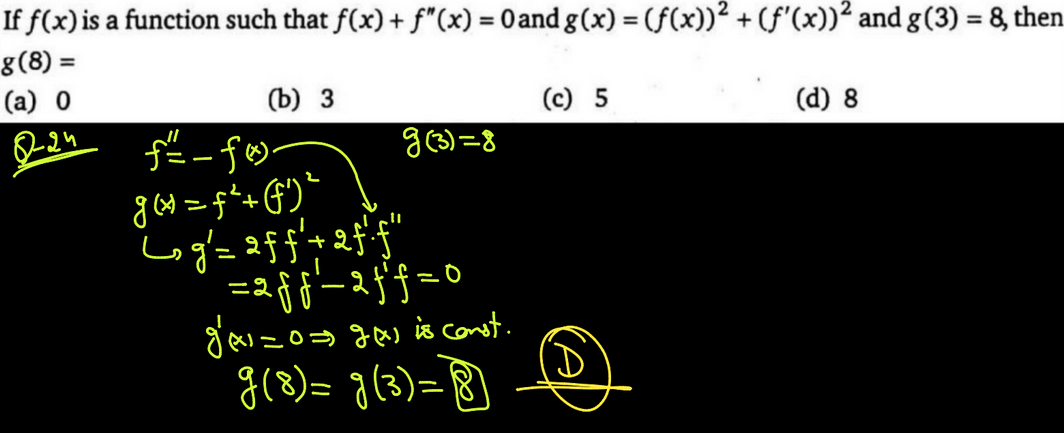 If f(x) is a function such that f(x) + f"(x) = 0 and g(x) = (f(x))² + (f'(x))² and g(3) = 8, then
g(8) =
(a) 0 (b) 3 (c) 5 (d) 8
Q-24 f'' = - f(x) g(3)=8
g(x) = f² + (f')²
↳ g' = 2ff' + 2f'·f''
= 2ff' - 2f'f = 0
g'(x) = 0 ⇒ g(x) is const.
g(8) = g(3) = 8 D